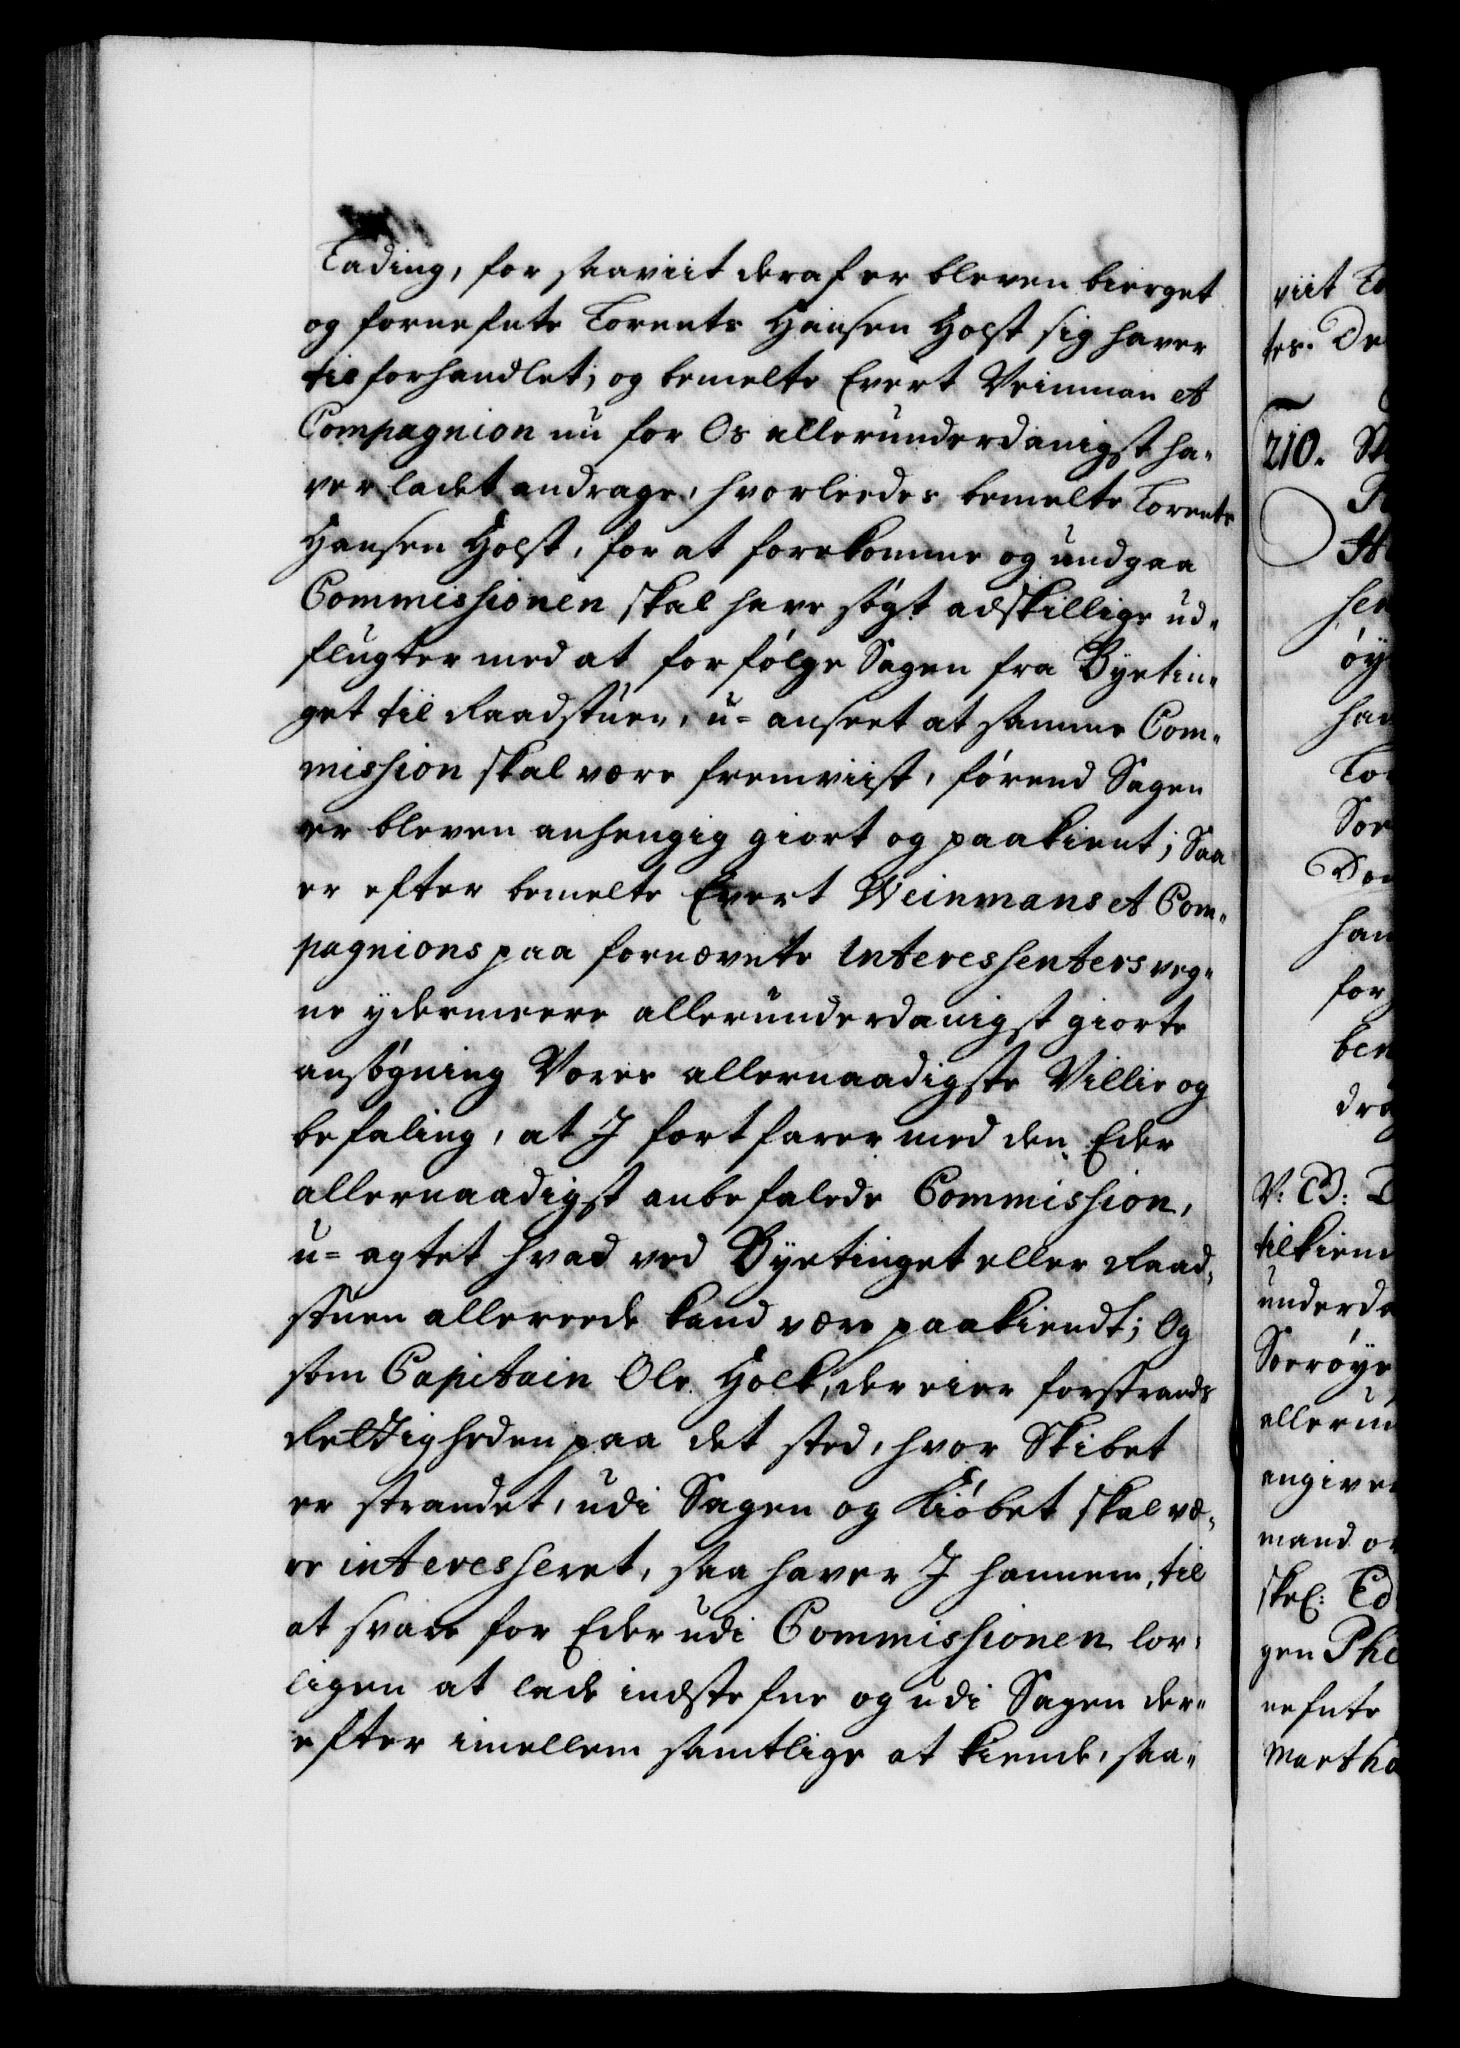 Lading, for saaviit deraf er bleven bierget
og fornefnte Lorents Hansen Holst sig haver
tilforhandlet; og bemelte Evert Veinman et
Compagnion nu for Os allerunderdanigst ha-
ver ladet andrage, hvorleedes bemelte Lorents
Hansen Holst, for at forekomme og undgaa
Commissionen skal have søgt adskillige ud-
flugter med at forfølge Sagen fra Byetin-
get til Raadstuen, u-anseet at samme Com-
mission skal være fremviist, førend Sagen
er bleven anhengig giort og paakient; Saa
er efter bemelte Evert Weinmans et Com-
pagnions paa fornævnte Interessenters veg-
ne ydermeere allerunderdanigst giorte
ansøgning Vores allernaadigste Villie og
befaling, at I fortfarer med den Eder
allernaadigst anbefalede Commission,
u-agtet hvad ved Byetinget eller Raad-
stuen allereede kand være paakiendt; Og
som Capitain Ole Holck, der eier forstrands
Rettigheden paa det sted, hvor Skibet
er strandet, udi Sagen og Kiøbet skal væ-
re interesseret, saa haver I hannem, til
at svare for Eder udi Commissionen lov-
ligen at lade indstefne og udi Sagen der-
efter imellem samtlige at kiende, saa-
viit
tes.
210.
V: B:
tilkiend
underda
Soerøye
allerun
angive
mand
skel:
gen
nefnte
Martha